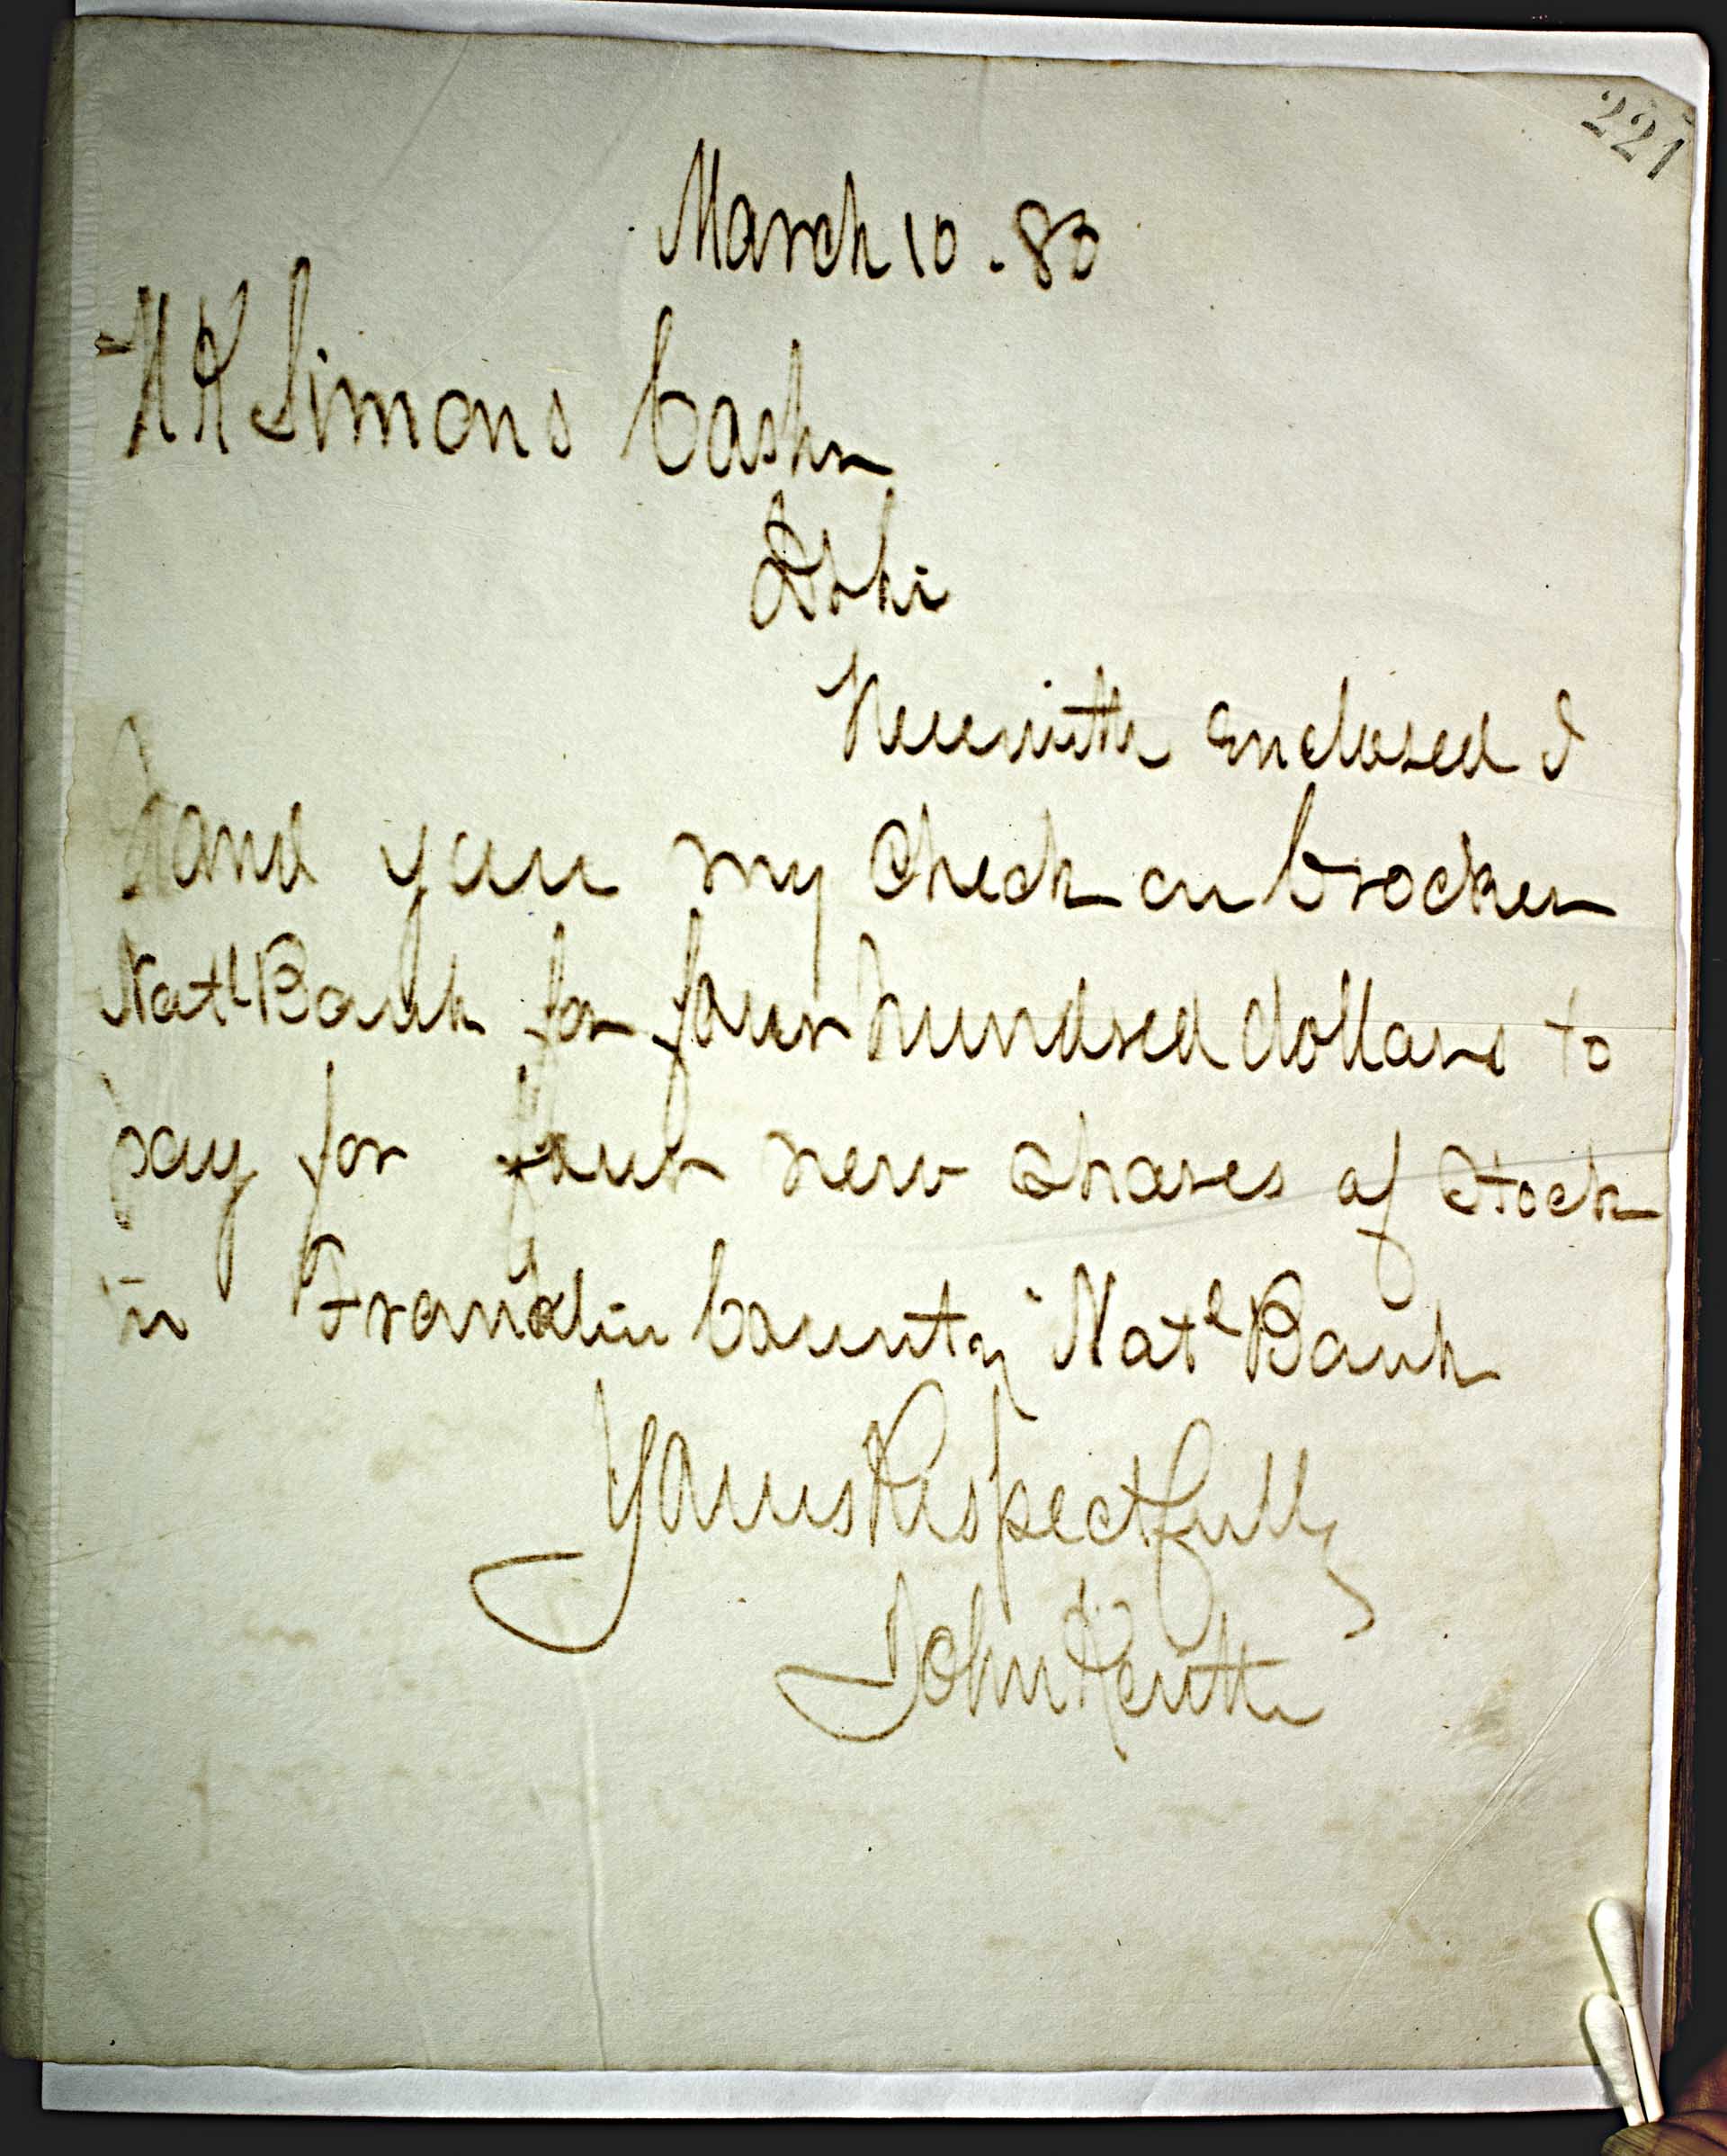 221
March 10 - 80
Simons Cashr
D Sir
Herewith Enclosed I
hand you my check on Crocker
Natl Bank for four hundred dollars to
pay for four new shares of Stock
in Franklin County Natl Bank
Yours Respectfully
John Keith